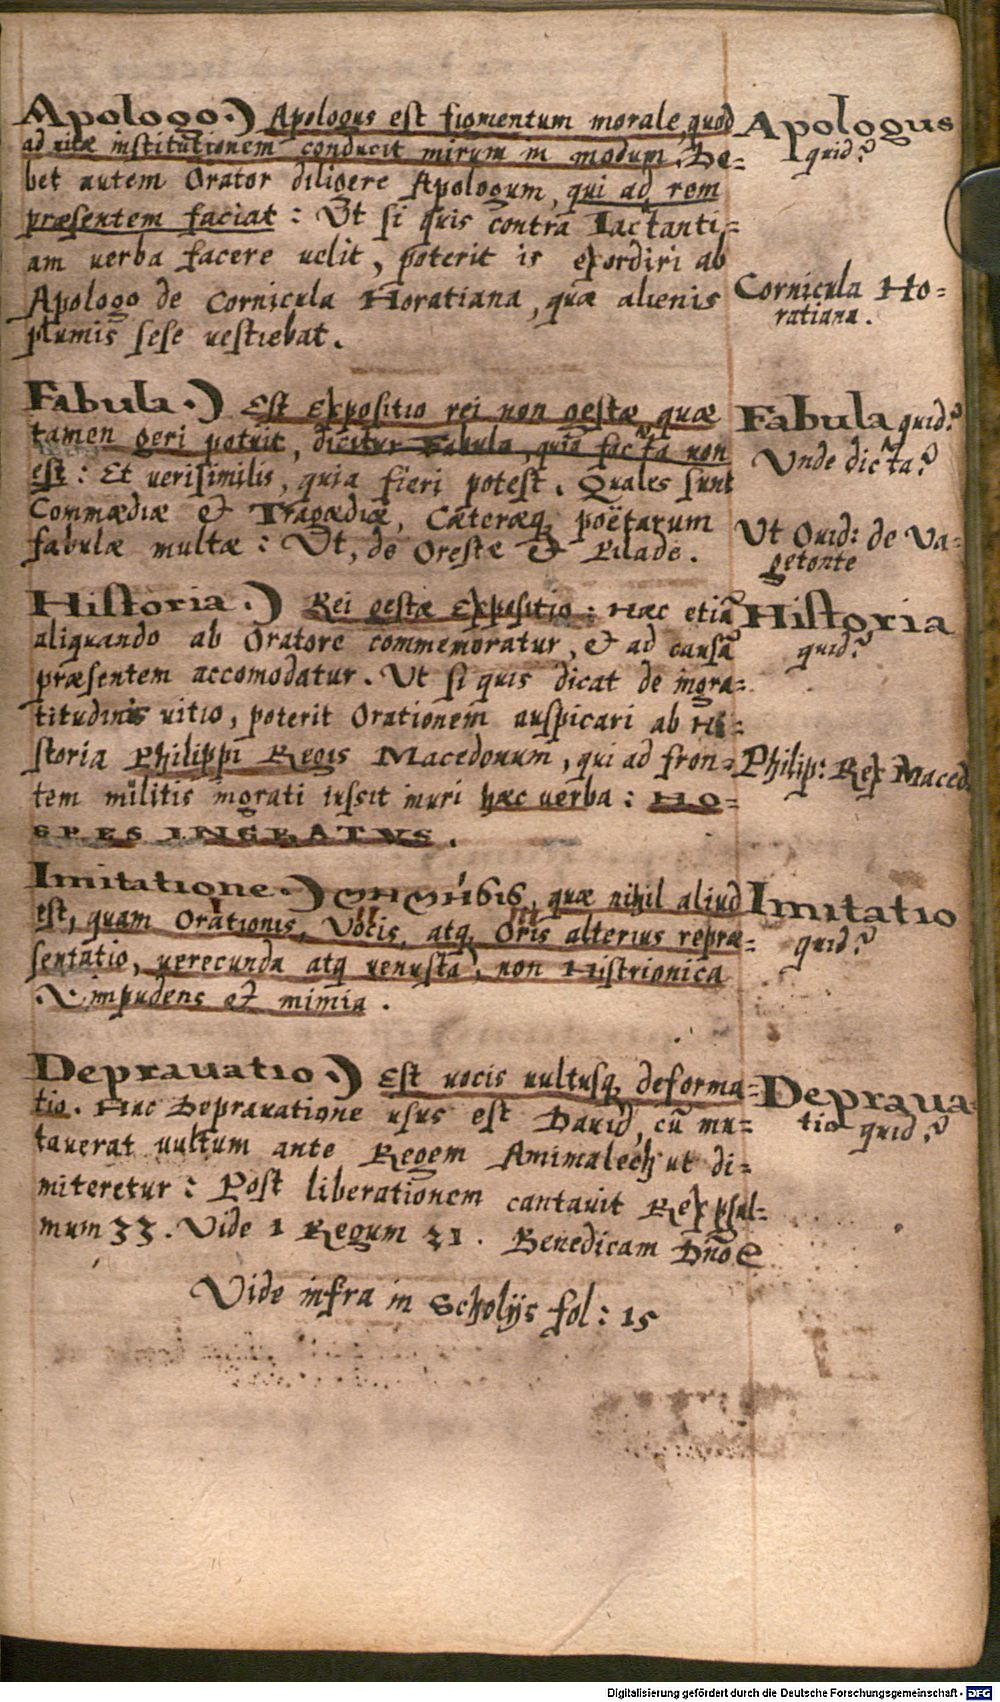 Apologo.) Apologus est figmentum morale, quod
ad uitæ institutionem conducit mirum in modum. De=
bet autem Orator diligere Apologum, qui ad rem
præsentem faciat: Ut si quis contra Iactanti=
am uerba facere uelit, poterit is exordiri ab
Apologo de Cornicula Horatiana, quæ alienis
plumis sese uestiebat.
Apologus
quid?
Cornicula Ho=
ratiana.
Fabula.) Est Expositio rei non gestæ quæ
tamen geri potuit, dicitur Fabula, quia facta non
est: Et uerisimilis, quia fieri potest. Quales sunt
Commædiæ & Tragædiæ, Cæteræq poëtarum
fabulæ multæ: Ut, de Oreste & Pilade.
Fabula quid?
Unde dicta?
Ut Ouid: de Va=
getonte
Historia.) Rei gestæ Expositio: Hæc etiã
aliquando ab Oratore commemoratur, & ad causã
præsentem accomodatur. Ut si quis dicat de ingra=
titudinis uitio, poterit Orationem auspicari ab Hi=
storia Philippi Regis Macedonum, qui ad fron=
tem militis ingrati iussit inuri hæc uerba: HO=
SPES INGRATVS.
Historia
quid?
Philip: Rex Maced.
Imitatione.) quæ nihil aliud
est, quam Orationis, Vocis, atq Oris alterius repræ=
sentatio, uerecunda atq uenusta, non Histrionica
impudens et mimia.
Imitatio
quid?
Deprauatio.) Est uocis uultusq deforma=
tio. Hac Deprauatione usus est Dauid, cũ mu=
tauerat uultum ante Regem Amimalech ut di=
miteretur: Post liberationem cantauit Rex psal=
mum 33. Vide 1 Regum 21. Benedicam Dño &
Depraua
tio quid?
Vide infra in Scholijs fol: 15
Digitalisierung gefördert durch die Deutsche Forschungsgemeinschaft - DFG